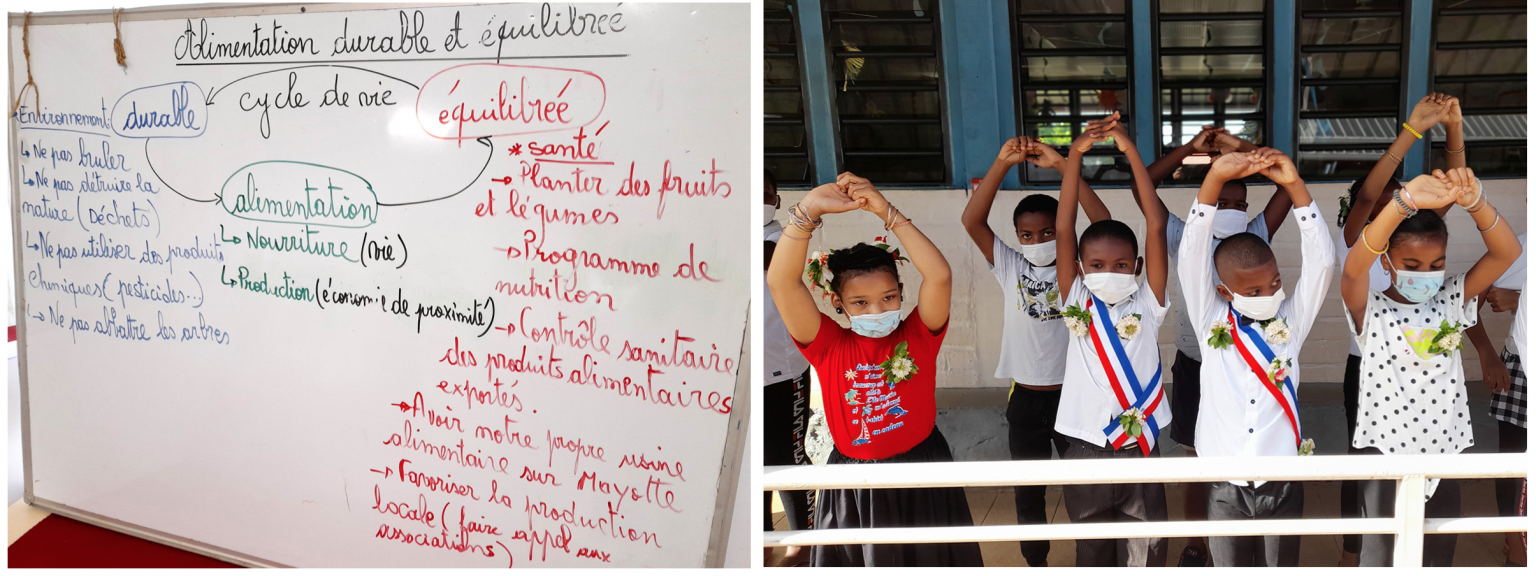 Alimentation durable et équilibrée
cycle de vie
Environnement:
durable
↳ Ne pas bruler
↳ Ne pas détruire la
nature (Déchets)
↳ Ne pas utiliser des produits
chimiques (pesticides...)
↳ Ne pas abattre les arbres
alimentation
↳ Nourriture (vie)
↳ Production (économie de proximité)
équilibrée
* santé
→ Planter des fruits
et légumes
→ Programme de
nutrition
→ Contrôle sanitaire
des produits alimentaires
exportés.
→ Avoir notre propre usine
alimentaire sur Mayotte
→ Favoriser la production
locale (faire appel aux
associations)